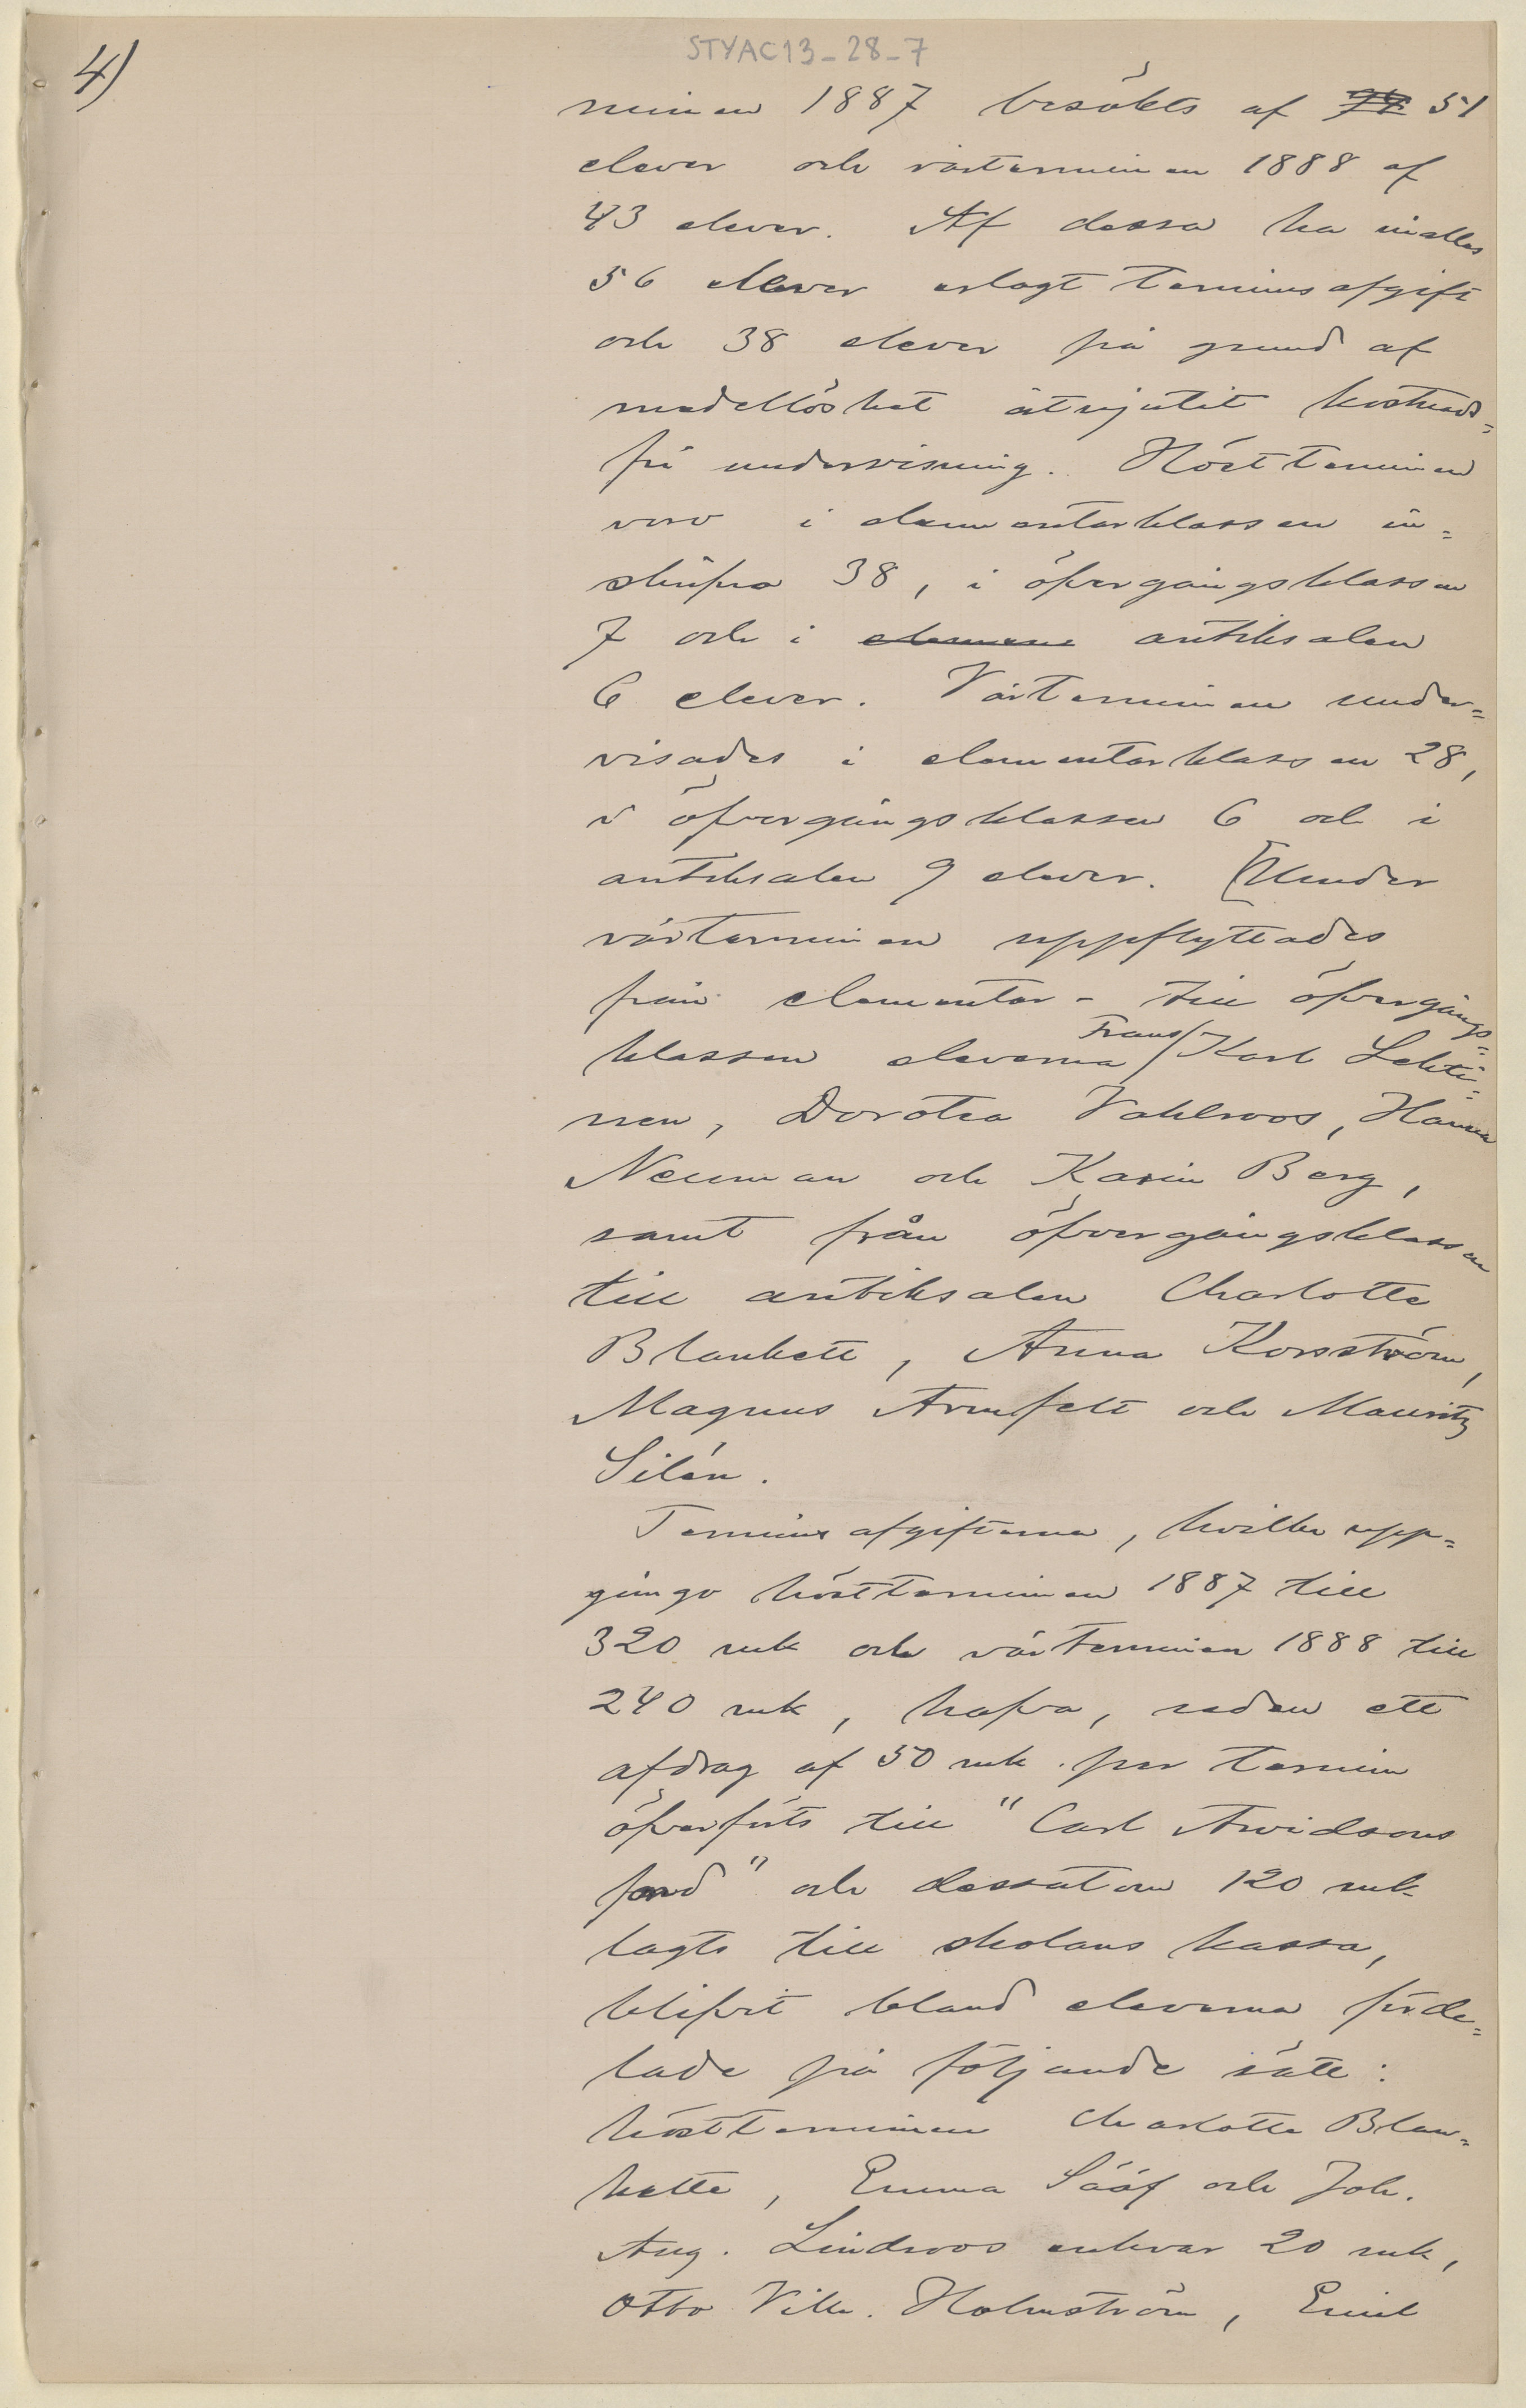 STYAC13-28-7
4)
minen 1887 besökts af 51
elever och vårterminen 1888 af
43 elever. Af dessa ha inalles
56 elever erlagt terminsafgift
och 38 elever på grund af
medellöshet åtnjutit kostnads=
fri undervisning. Höstterminen
voro i elementarklassen in=
skrifna 38, i öfvergångsklassen
7 och i antiksalen
6 elever. Vårterminen under=
visades i elementarklassen 28,
i öfvergångsklassen 6 och i
antiksalen 9 elever. [Under
vårterminen uppflyttades
från elementar- till öfvergångs=
klassen eleverna Frans Karl Lehti=
nen, Dorotea Vahlroos, Hanna
Neuman och Karin Berg,
samt från öfvergångsklassen
till antiksalen Charlotte
Blankett, Anna Korsström,
Magnus Armfelt och Mauritz
Silén.
Terminsafgifterna, hvilka upp=
gingo höstterminen 1887 till
320 mk och vårterminen 1888 till
240 mk, hafva, sedan ett
afdrag af 50 mk. per termin
öfverförts till "Carl Arvidsons
fond" och dessutom 120 mk
lagts till skolans kassa,
blifvit bland eleverna förde=
lade på följande sätt:
höstterminen Charlotte Blan=
kette, Emma Sääf och Joh.
Aug. Lindroos enhvar 20 mk,
Otto Vilh. Holmström, Emil